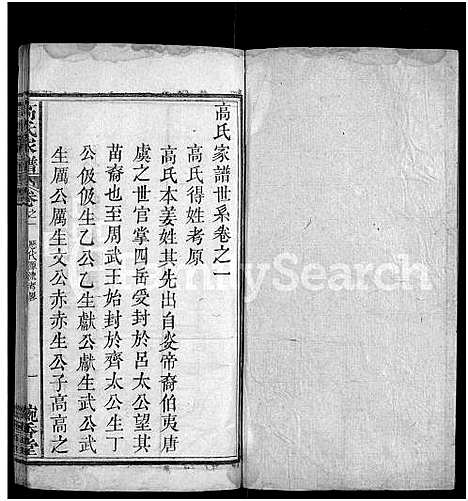 高氏家譜世系卷之一
高氏得姓考原
高氏本姜姓其先出自炎帝裔伯夷唐
虞之世官掌四岳受封於呂太公望其
苗裔也至周武王始封於齊太公生丁
公伋伋生乙公乙公生獻公獻生武公武
生厲公厲生文公赤赤生公子高高之
高氏家譜
卷之一
一